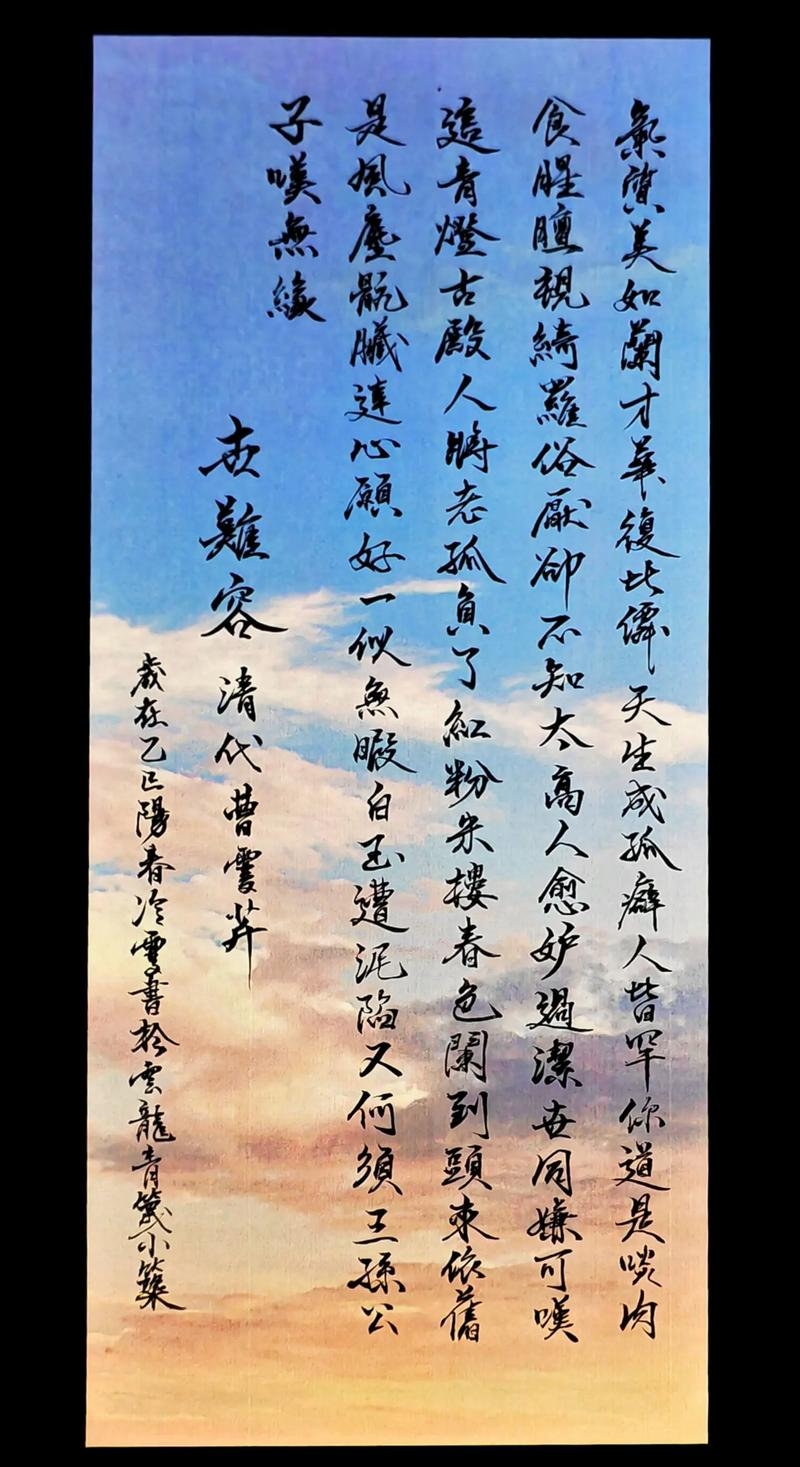 氣質美如蘭才華復比僊天生成孤癖人皆罕你道是啖肉
食腥膻視綺羅俗厭卻不知太高人愈妒過潔世同嫌可嘆
這青燈古殿人將老孤負了紅粉朱樓春色闌到頭來依舊
是風塵骯臟違心願好一似無暇白玉遭泥陷又何須王孫公
子嘆無緣
世難容 清代曹雪芹
歲在乙巳陽春冷雪書於雲龍青小築